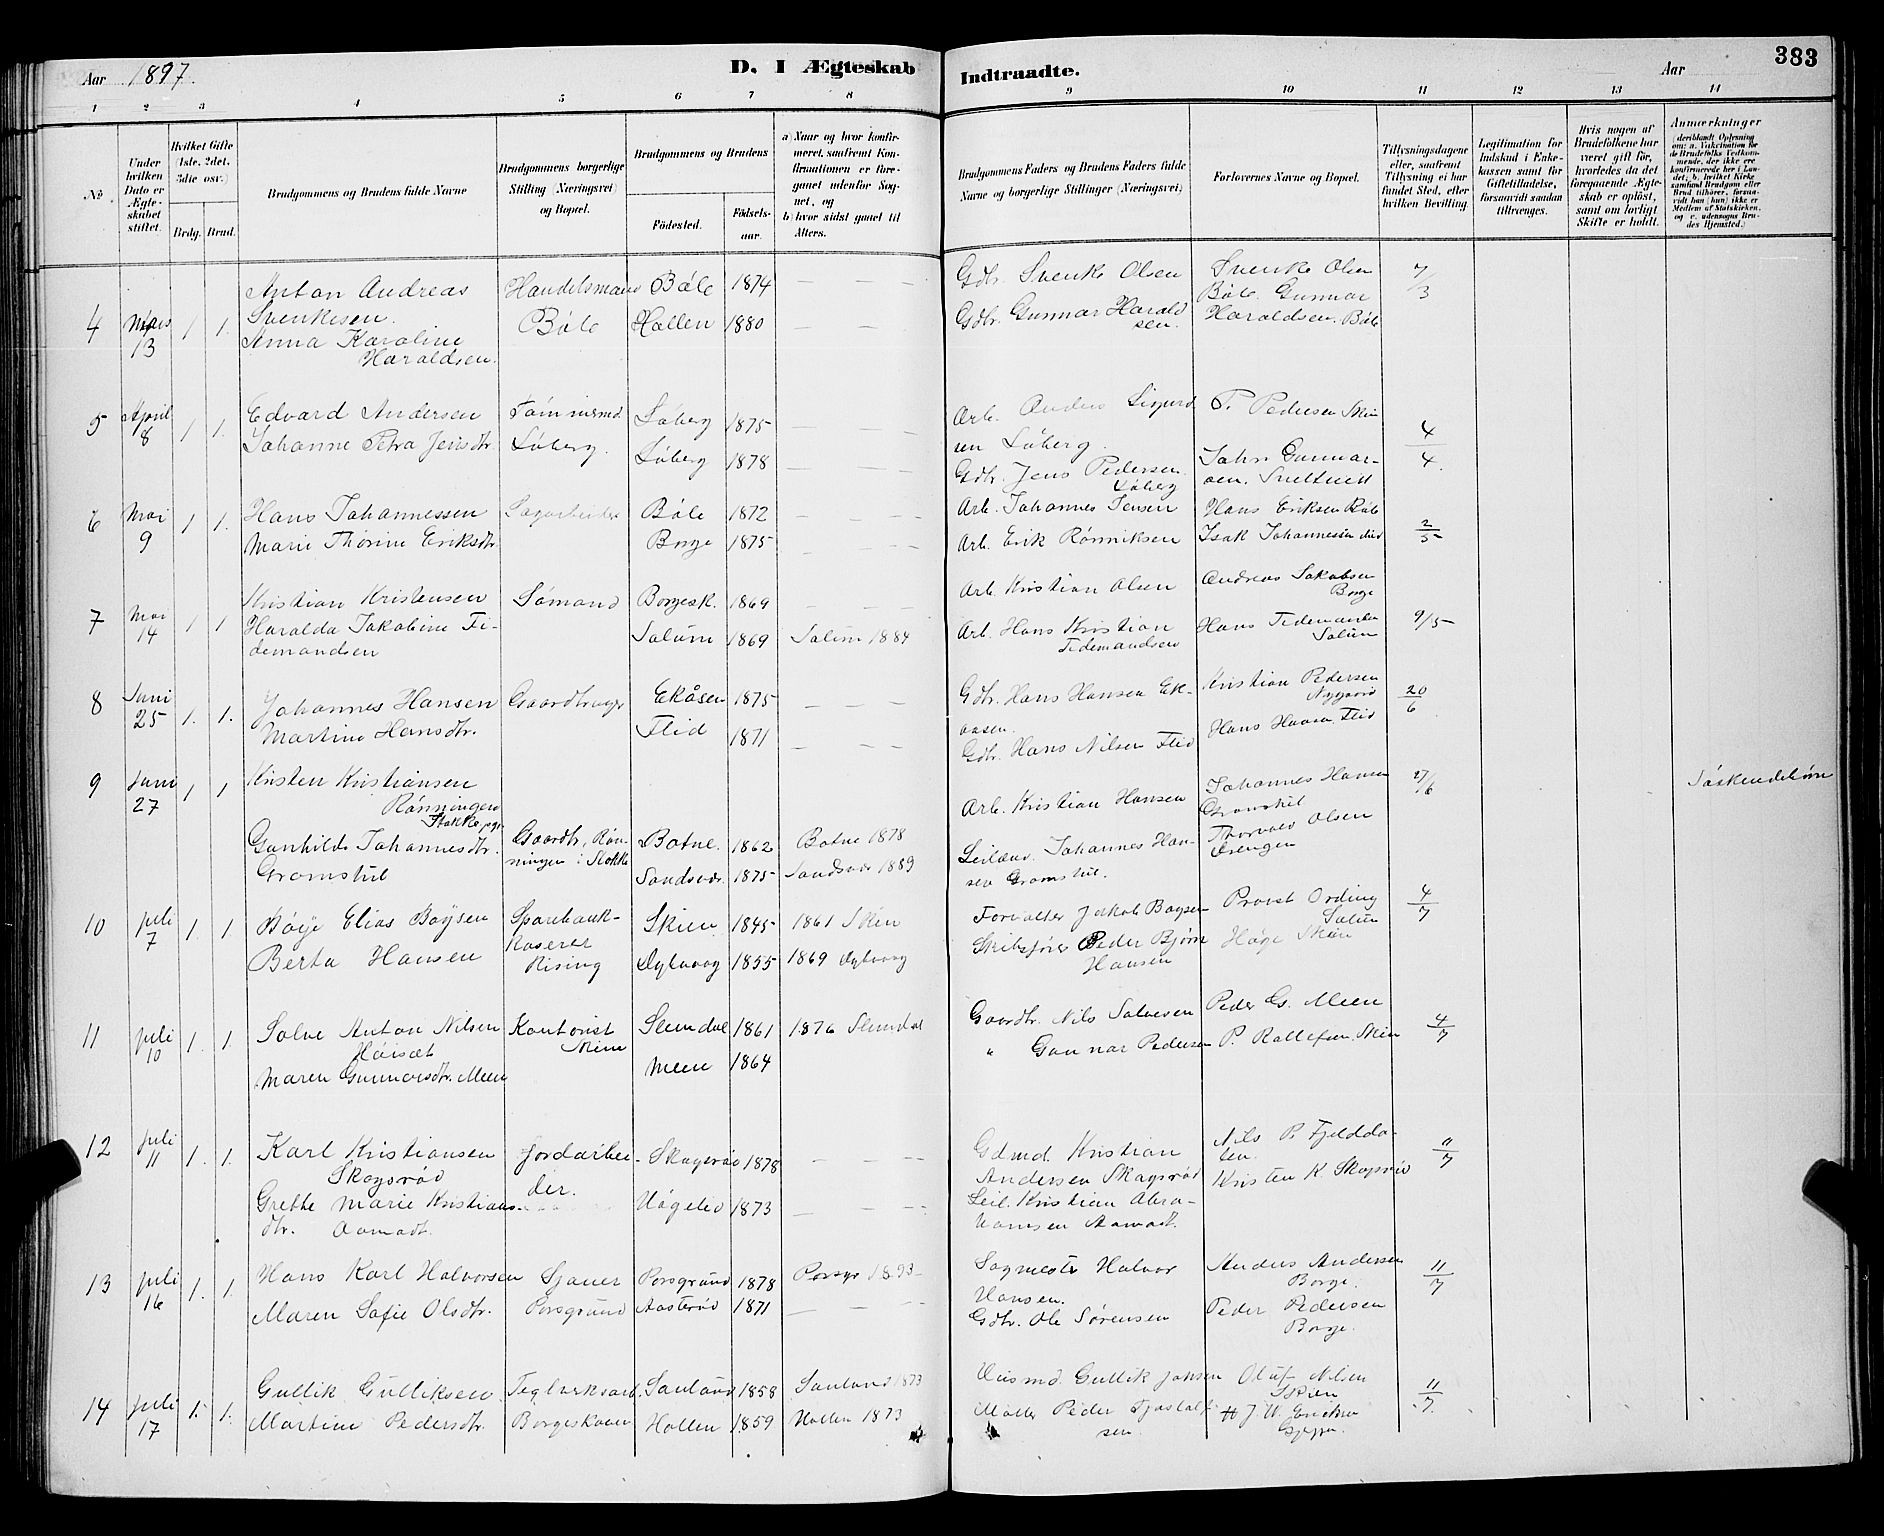 383
Aar 1897. D. I Ægteskab Indtraadte. Aar
1 2 3 4 5 6 7 8 9 10 11 12 13 14
No.
Under hvilken Dato er Ægteskabet stiftet.
Hvilket Gifte (1ste, 2det, 3die osv.)
Brdg. Brud.
Brudgommens og Brudens fulde Navne
Brudgommens borgerlige Stilling (Næringsvei) og Bopæl.
Brudgommens og Brudens
Fødested.
Fødselsaar.
a) Naar og hvor konfirmeret, saafremt Konfirmationen er foregaaet udenfor Sognet, og
b) hvor sidst gaaet til Alters.
Brudgommens Faders og Brudens Faders fulde Navne og borgerlige Stillinger (Næringsvei)
Forlovernes Navne og Bopæl.
Tillysningsdagene eller, saafremt Tillysning ei har fundet Sted, efter hvilken Bevilling.
Legitimation for Indskud i Enkekassen samt for Giftetilladelse, forsaavidt saadan tiltrænges.
Hvis nogen af Brudefolkene har været gift før, hvorledes da det foregaaende Ægteskab er opløst, samt om lovligt Skifte er holdt.
Anmærkninger
4 Mars 13 1 1.
Anton Andreas Handelsmand Bøle 1874 — — —
Svenkesen. Bøle Hollen 1880 — — —
Anna Karoline
Haraldsen.
Gdbr. Svenke Olsen Svenke Olsen 7/3
Bøle. Gunnar
Gdbr. Gunnar Harald Haraldsen. Bøle
sen.
5 April 8 1 1.
Edvard Andersen Tømmermd. Løberg 1875 — — —
Johanne Petra Jensdtr. Løberg. Løberg 1878 — — —
Arb. Anders Sigurd P. Pedersen Skien
sen Løberg. 4/4.
Gdbr. Jens Pedersen John Gunnar-
Løberg sen.
6 Mai 9 1 1.
Hans Johannessen Sagarbeider Bøle 1872 — — —
Marie Thorine Eriksdtr. Borge 1875 — — —
Arb. Johannes Jensen Hans Eriksen Bøle
Arb. Erik Rønniksen Isak Johannessen 2/5
7 Mai 14 1 1
Kristian Kristensen Sømand Borgesk. 1869 — — —
Haralda Jakobine Ti- Solum 1869 Solum 1884
demandsen
Arb. Kristian Olsen Andreas Jakobsen
Borge
Arb. Hans Kristian Hans Tidemandsen 9/5
Tidemandsen Solum
8 Juni 25 1. 1.
Johannes Hansen Gaardbruger Ekåsen 1875 — — —
Martine Hansdtr. Flid 1871 — — —
Gdbr. Hans Hansen Ek- Kristian Pedersen 20/6
aasen. Nygaard
Gdbr. Hans Nilsen Flid Hans Hansen Flid
9 Juni 27 1 1
Kristen Kristiansen
Rønningen
Stokke pgr.
Gunhilde Johannesdtr. Gaardbr. Røn- Botne. 1862 Botne 1878
Gromstul ningen i Stokke Sandsvær. 1875 Sandsvær 1889
Arb. Kristian Hansen Johannes Hansen 27/6 Søskendebørn
Gromstul
Leilænd. Johannes Han- Thorvald Olsen
sen Gromstul.
10 juli 7 1. 1
Bøye Elias Boysen Sparebank- Skien 1845 1861 Skien
Berta Hansen kaserer Dybvaag 1855 1869 Dybvaag
Rising
Forvalter Jakob Boysen Provst Ording 4/7
Solum
Skibsfører Peder Bjørn Høge Skien
Hansen
11 juli 10 1. 1
Solve Anton Nilsen Kontorist Slemdal 1861 1876 Slemdal
Høisæt Skien
Maren Gunnarsdtr. Meen Meen 1864
Gaardbr. Nils Solvesen Peder G. Meen 4/7
" Gunnar Pedersen P. Rollefsen. Skien
12 juli 11 1. 1.
Karl Kristiansen Jordarbei- Skogsrød 1878 — — —
Skogsrød der.
Grethe Marie Kristians- 1873 — — —
dtr. Aamodt.
Gdmd. Kristian Nils P. Fjeldda- 11/7
Andersen Skogsrød len.
Leil. Kristian Abra- Kristen K. Skogsrød
hamsen Aamodt.
13 juli 16 1. 1
Hans Karl Halvorsen Sjauer Porsgrund 1878 Porsgr 1893
Maren Sofie Olsdtr. Porsgrund Aasterød 1871 — — —
Sagmester Halvor Anders Andersen 11/7
Hansen. Borge.
Gdbr. Ole Sørensen Peder Pedersen
Borge.
14 juli 17 1. 1.
Gullik Gulliksen Teglverksarb. Sauland 1858 Sauland 1873
Martine Pedersdtr. Borgeskaven Hollen 1859 Hollen 1873
Husmd. Gullik Jonsen Oluf Nilsen 11/7
Skien
Møller Peder J. W. Eriksen
sen.